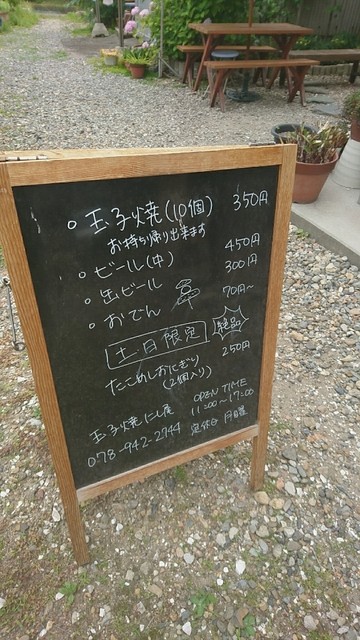 ○玉子焼(10個) 350円
お持ち帰り出来ます
○ビール(中) 450円
○缶ビール 300円
○おでん 70円〜
土・日限定 絶品
たこめしおにぎり 250円
(2個入り)
玉子焼にし尾 OPEN TIME 11:00〜17:00
078-942-2944 定休日 月曜